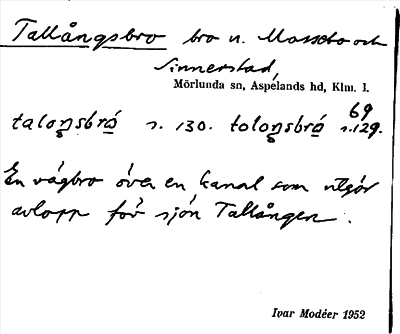 Tallångsbro bro n. Massebo och
Sinnerstad,
Mörlunda sn, Aspelands hd, Klm. l.
69
taloŋsbrå s. 130. toloŋsbrå s. 129.
En vägbro över en kanal som utgör
avlopp för sjön Tallången.
Ivar Modéer 1952